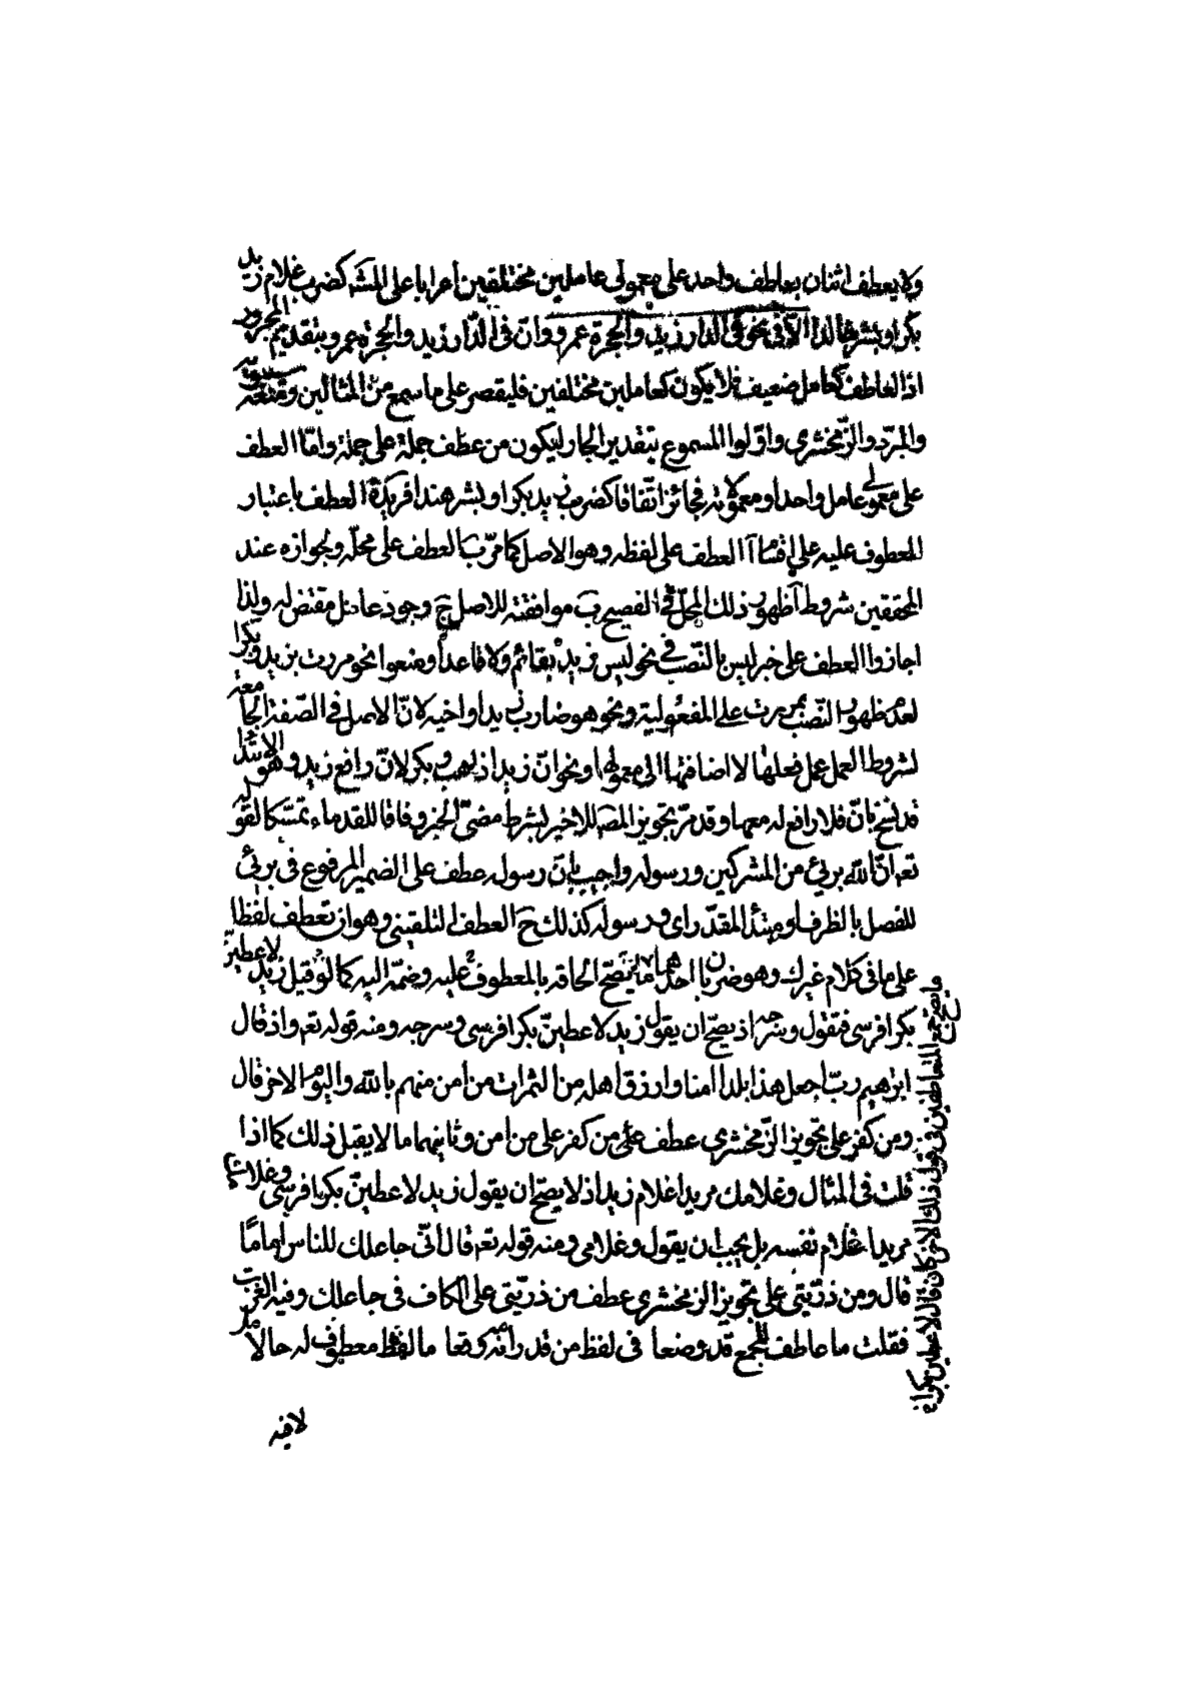 ولا يعطف اثنان بعاطف واحد على معمولى عاملين مختلفين اعرابا على المش كضرب غلام زيد
بكرا وبشر خالدا الا فى نحو فى الدار زيد والحجرة عمرو وانّ فى الدّار زيد والحجرة عمرو بتقديم المجرور
اذ العاطف كعامل ضعيف فلا يكون كعاملين مختلفين فليقصر على ما سمع من المثالين ومنعه سيبويه
والمبرّد والزّمخشرى واوّلوا المسموع بتقدير الجار ليكون من عطف جملة على جملة وامّا العطف
على معمولى عامل واحد او معمولاته فجائز اتّفاقا كضرب زيد بكرا وبشر هندا فريدة العطف باعتبار
المعطوف عليه على اقسام آ العطف على لفظه وهو الاصل كما مرّ ب العطف على محلّه ولجوازه عند
المحققين شروط آ ظهور ذلك المحلّ فى الفصيح ب موافقته للاصل ج وجود عامل مقتض له ولذا
اجازوا العطف على خبر ليس بالنّصب فى نحو ليس زيد بقائم ولا قاعدا ومنعوا نحو مررت بزيد وبكرا
لعدم ظهور النّصب بمررت على المفعولية ونحو هو ضارب زيد او اخيه لانّ الاصل فى الصّفة الجامعة
لشروط العمل عمل فعلها لا اضافتها الى معمولها ونحو انّ زيدا ذاهب وبكر لانّ رافع زيد وهو الابتداء
قد نسخ بانّ فلا رافع له معها وقد مرّ تجويز المص للاخير بشرط مضىّ الخبر وفاقا للقدماء تمسّكا لقوله
تعه انّ الله برئ من المشركين ورسوله واجيب بانّ رسوله عطف على الضمير المرفوع فى برئ
للفصل بالظرف او مبتدأ لمقدّر اى ورسوله كذلك ج العطف التلقينى وهو ان تعطف لفظا
على ما فى كلام غيرك وهو ضربان احدهما ما يصحّ الحاقه بالمعطوف عليه وضمّه اليه كما لو قيل زيد لاعطينّ
بكرا فرسى فتقول وسرجه اذ يصحّ ان يقول زيد لاعطينّ بكرا فرسى وسرجه ومنه قوله تعه واذ قال
ابرهيم ربّ اجعل هذا بلدا امنا وارزق اهله من الثمرات من امن منهم بالله واليوم الاخر قال
ومن كفر على تجويز الزّمخشرى عطف من كفر على من امن وثانيهما ما لا يقبل ذلك كما اذا
قلت فى المثال وغلامك مريدا غلام زيد اذ لا يصحّ ان يقول زيد لاعطينّ بكرا فرسى وغلامك
مريدا غلام نفسه بل يجب ان يقول وغلامى ومنه قوله تعه قال انّى جاعلك للناس اماما
قال ومن ذرّيّتى على تجويز الزمخشرى عطف من ذرّيّتى على الكاف فى جاعلك وفيه
فقلت ما عاطف للجمع قد وضعا فى لفظ من قد وقعا ما لفظ معطوف له حالا
لا فيه
ما يصحّ جمع المتعاطفين فى قول ذلك الاخر كان قال لاعطين بكرا